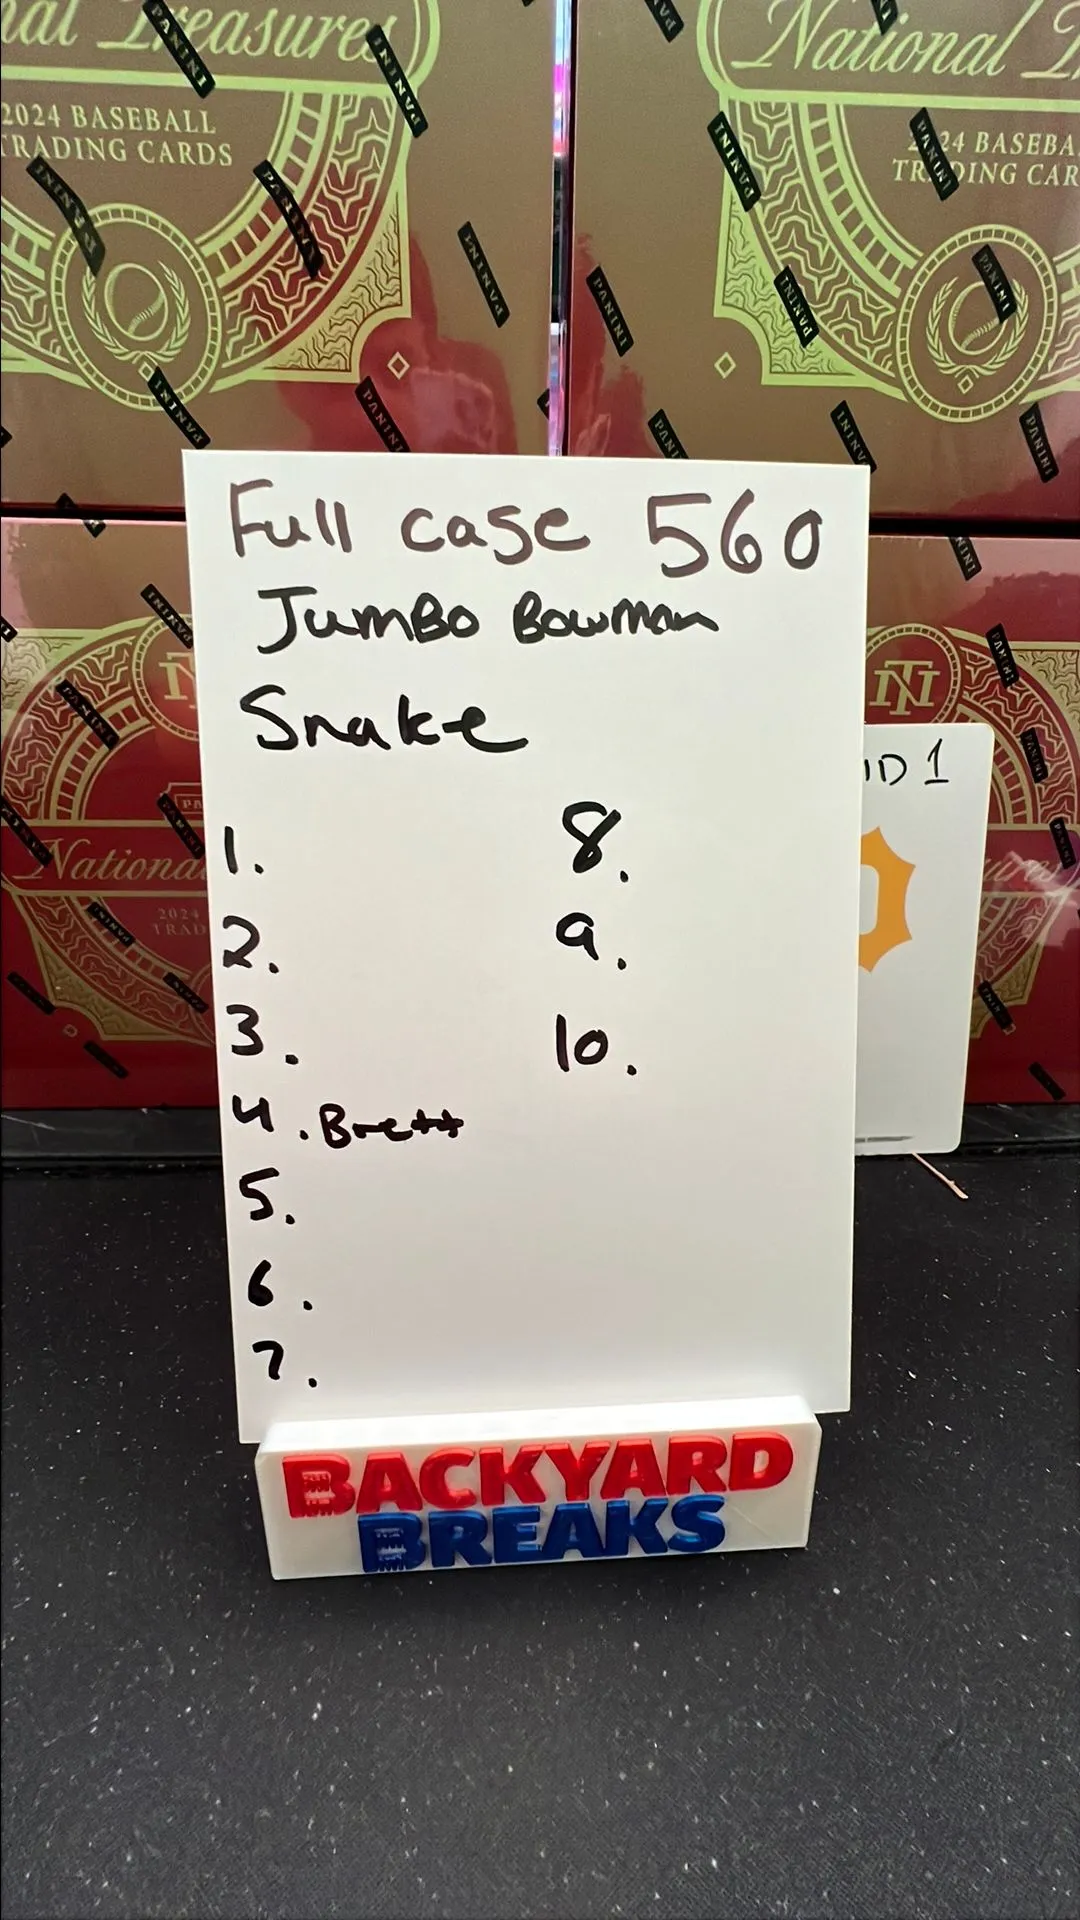 nal Treasures
2024 BASEBALL
TRADING CARDS
National
2024 BASEBA
TRADING CAR
PANINI
Full case 560
Jumbo Bowman
Snake
1.
2.
3.
4. Brett
5.
6.
7.
8.
9.
10.
ID 1
NT
National
2024
TRAD
ures
BACKYARD
BREAKS